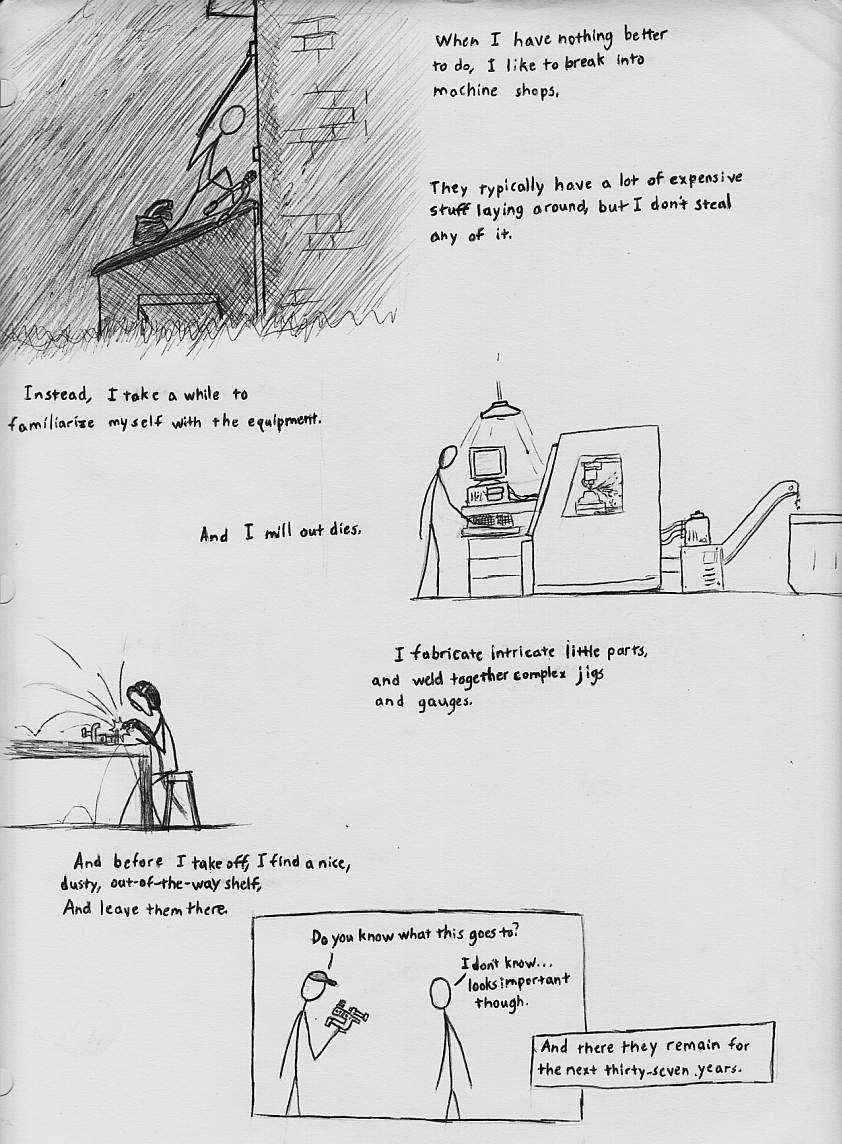 When I have nothing better
to do, I like to break into
machine shops.
They typically have a lot of expensive
stuff laying around, but I don't steal
any of it.
Instead, I take a while to
familiarize myself with the equipment.
And I mill out dies.
I fabricate intricate little parts,
and weld together complex jigs
and gauges.
And before I take off, I find a nice,
dusty, out-of-the-way shelf,
And leave them there.
Do you know what this goes to?
I don't know...
looks important
though.
And there they remain for
the next thirty-seven years.